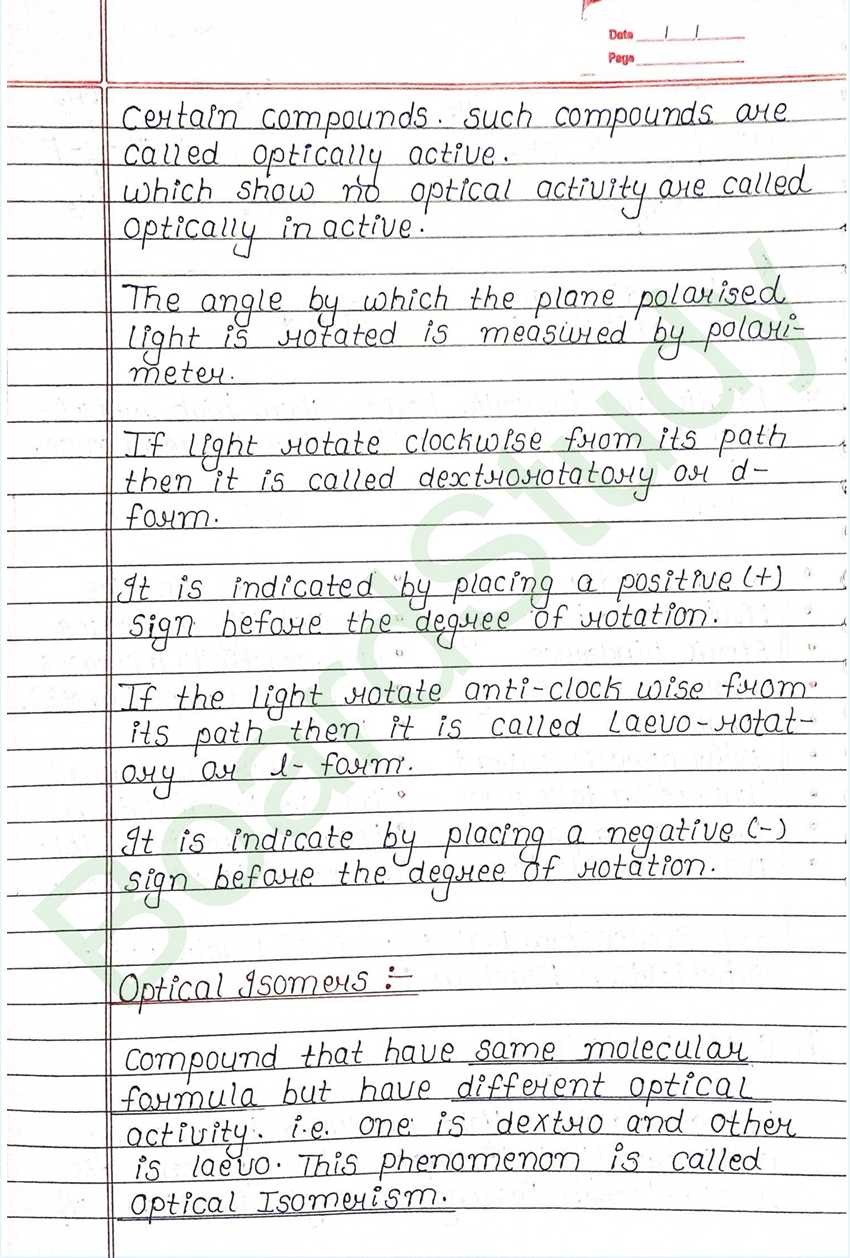 Date / /
Page
Certain compounds. such compounds are
called optically active.
which show no optical activity are called
optically in active.
The angle by which the plane polarised
light is rotated is measured by polari-
meter.
If light rotate clockwise from its path
then it is called dextrorotatory or d-
form.
It is indicated by placing a positive (+)
sign before the degree of rotation.
If the light rotate anti-clock wise from
its path then it is called Laevo-rotat-
ory or l- form.
It is indicate by placing a negative (-)
sign before the degree of rotation.
Optical Isomers :-
Compound that have same molecular
formula but have different optical
activity. i.e. one is dextro and other
is laevo. This phenomenon is called
optical Isomerism.
BoardStudy